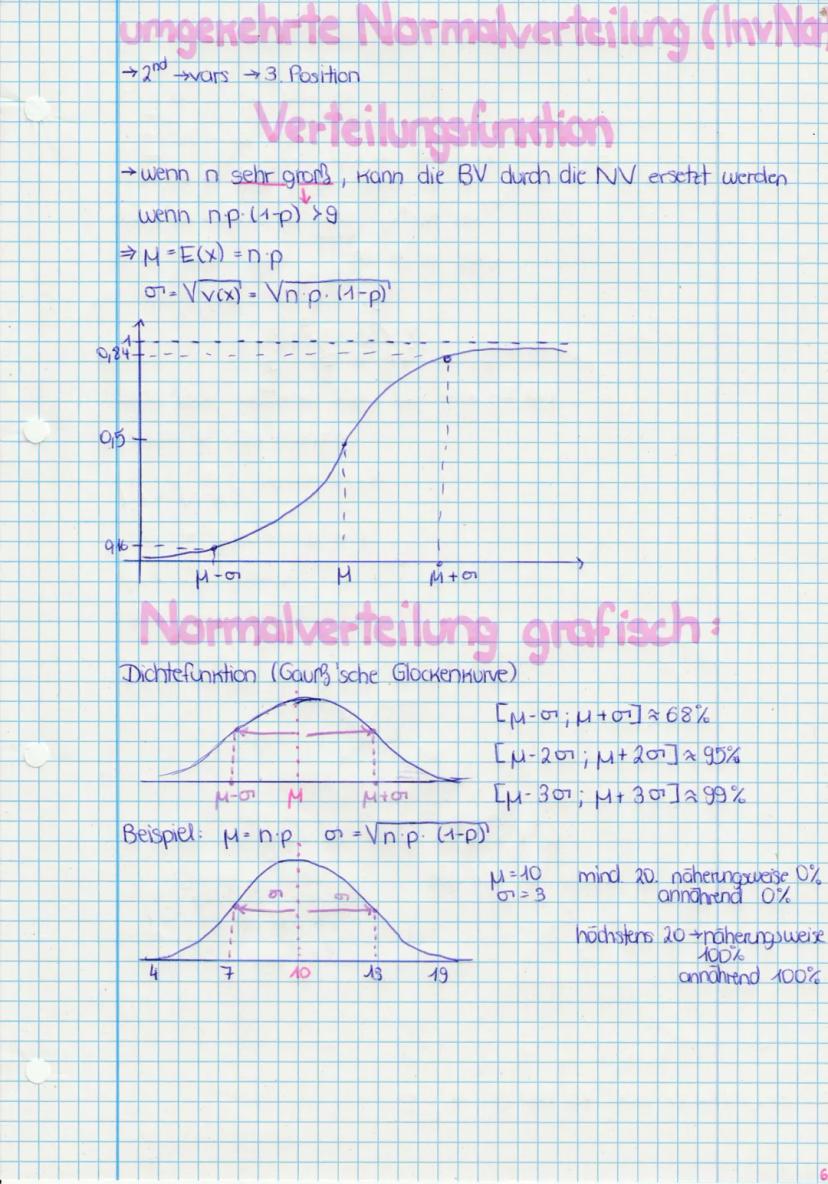 umgekehrte Normalverteilung (InvNo
→ 2nd → vars → 3. Position
Verteilungsfunktion
→ wenn n sehr groß, kann die BV durch die NV ersetzt werden
wenn n·p·(1-p) > 9
⇒ μ = E(x) = n·p
σ = √V(x) = √n·p·(1-p)
1
0,84
0,5
0,16
μ-σ μ μ+σ
Normalverteilung grafisch:
Dichtefunktion (Gauß'sche Glockenkurve)
[μ-σ; μ+σ] ≈ 68%
[μ-2σ; μ+2σ] ≈ 95%
[μ-3σ; μ+3σ] ≈ 99%
μ-σ μ μ+σ
Beispiel: μ = n·p σ = √n·p·(1-p)
σ σ
4 7 10 13 19
μ = 10 mind 20. näherungsweise 0%
σ = 3 annährend 0%
höchstens 20 → näherungsweise
100%
annährend 100%
6